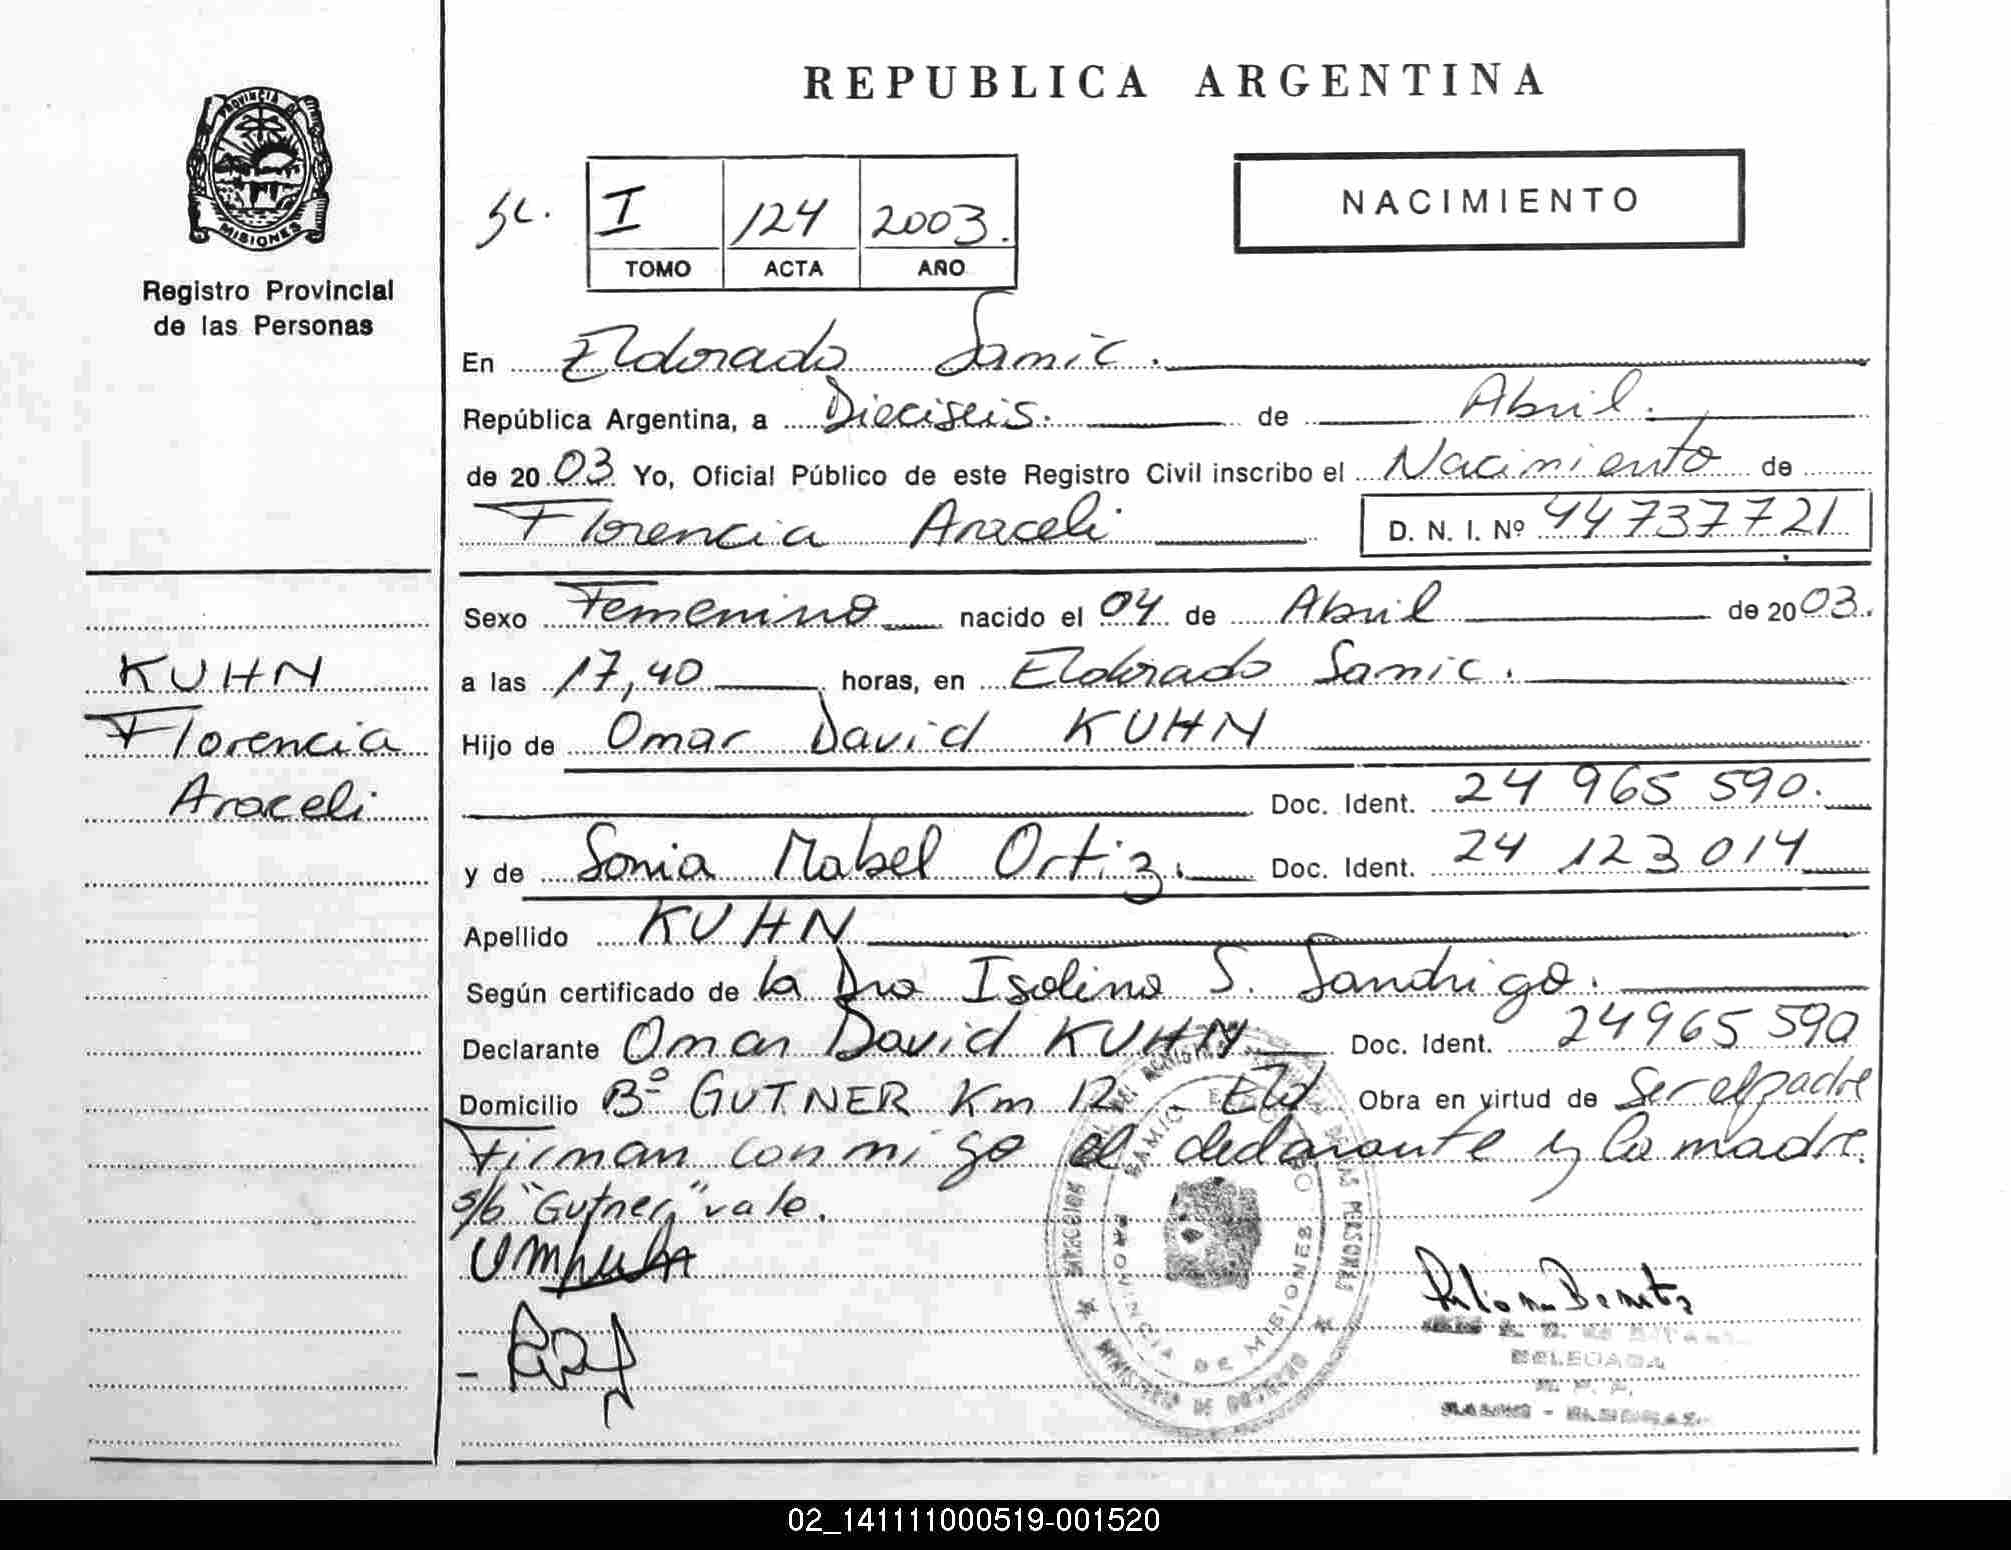 REPUBLICA ARGENTINA
PROVINCIA DE
MISIONES
Registro Provincial
de las Personas
Sc. I 124 2003.
TOMO ACTA AÑO
NACIMIENTO
En Eldorado Samic.
República Argentina, a Dieciseis. de Abril.
de 2003 Yo, Oficial Público de este Registro Civil inscribo el Nacimiento de
Florencia Araceli D. N. I. Nº 44737721
Sexo Femenino nacido el 04 de Abril de 2003.
KUHN
Florencia
Araceli
a las 17,40 horas, en Eldorado Samic.
Hijo de Omar David KUHN
Doc. Ident. 24 965 590.
y de Sonia Mabel Ortiz. Doc. Ident. 24 123 014
Apellido KUHN
Según certificado de la Dra Isolina S. Sandrigo.
Declarante Omar David KUHN Doc. Ident. 24965 590
Domicilio Bº GUTNER Km 12 Eld Obra en virtud de Ser el padre
Firman conmigo el declarante y la madre.
s/b "Gutner" vale.
PROVINCIA DE MISIONES
DELEGADA
02_141111000519-001520